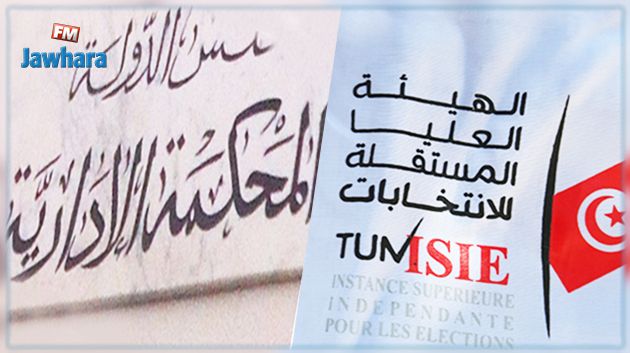 FM
Jawhara
الدولة
المحكمة الإدارية
الهيئة
العليا
المستقلة
للانتخابات
TUNISIE
INSTANCE SUPERIEURE
INDEPENDANTE
POUR LES ELECTIONS